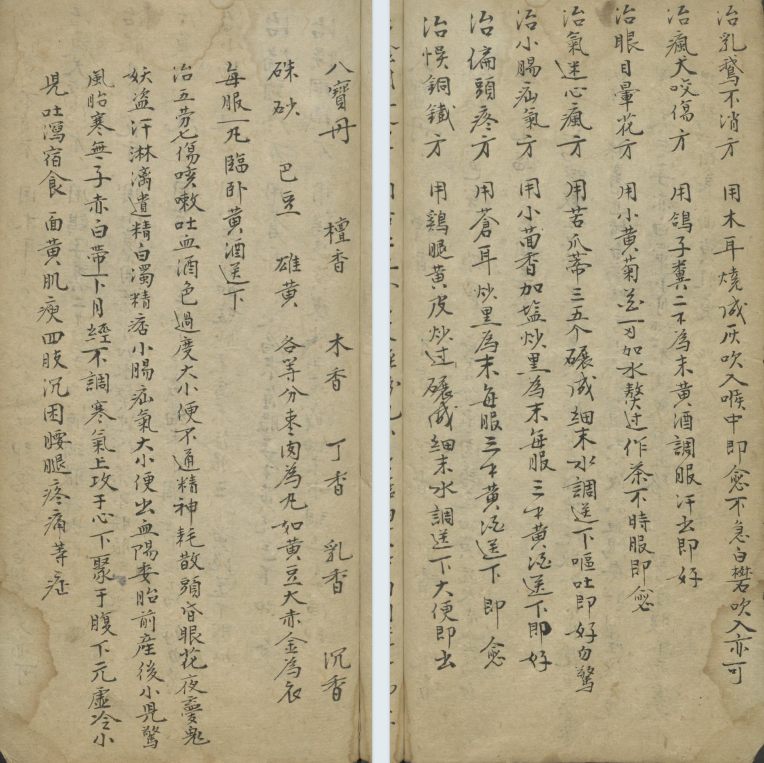 治乳鵝不消方 用木耳燒成灰吹入喉中即愈不急白礬吹入亦可
治瘋犬咬傷方 用鴿子糞二不為末黃酒調服汗出即好
治眼目暈花方 用小黃菊花一刃加水熬过作茶不時服即愈
治氣迷心瘋方 用苦瓜蒂三五个碾成細末水調送下嘔吐即好勿驚
治小腸疝氣方 用小茴香加塩炒黑為末每服三不黃酒送下即好
治偏頭疼方 用蒼耳炒黑為末每服三不黃酒送下即愈
治悞銅鐵方 用鷄腿黃皮炒过碾成細末水調送下大便即出
八寶丹 檀香 木香 丁香 乳香 沉香
硃砂 巴豆 雄黃 各等分棗肉為丸如黃豆大赤金為衣
每服一丸臨卧黃酒送下
治五劳七傷咳嗽吐血酒色過度大小便不通精神耗散頭昏眼花夜夢鬼
妖盗汗淋漓遺精白濁精痞小腸疝氣大小便出血陽委胎前産後小児驚
風胎寒無子赤白帶下月經不調寒氣上攻于心下聚于腹下元虛冷小
児吐瀉宿食面黃肌瘦四肢沉困腰腿疼痛荨症